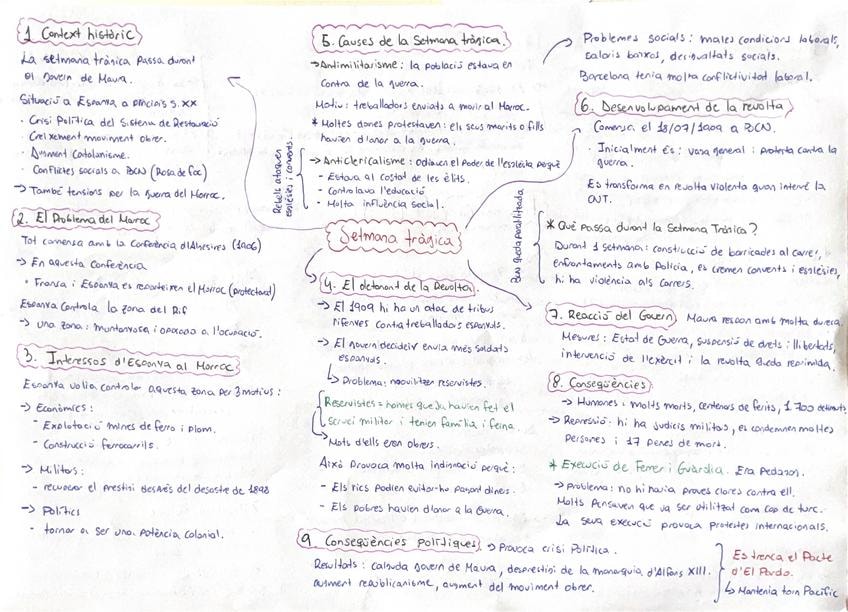 1. Context històric
La setmana tràgica passa durant
el govern de Maura.
Situació a Espanya a principis s.XX
· Crisi Política del Sistema de Restauració
· Creixement moviment obrer.
· Augment Catalanisme.
· Conflictes socials a BCN (Rosa de foc)
→ També tensions per la guerra del Marroc.
2. El Problema del Marroc
Tot comença amb la Conferència d'Algesires (1906)
→ En aquesta Conferència
· França i Espanya es reparteixen el Marroc (protectorat)
Espanya controla la zona del Rif
→ una zona: muntanyosa i oposada a l'ocupació.
3. Interessos d'Espanya al Marroc
Espanya volia controlar aquesta zona per 3 motius:
→ Econòmics:
- Explotació mines de ferro i plom.
- Construcció ferrocarrils.
→ Militars:
- recuperar el prestigi després del desastre de 1898
→ Polítics
- tornar a ser una potència colonial.
Setmana tràgica
4. El detonant de la Revolta.
→ El 1909 hi ha un atac de tribus
rifenyes contra treballadors espanyols.
→ El govern decideix enviar més soldats
espanyols.
↳ Problema: mobilitzen reservistes.
Reservistes = homes que ja havien fet el
servei militar i tenien família i feina.
→ Molts d'ells eren obrers.
Això provoca molta indignació perquè:
- Els rics podien evitar-ho pagant diners.
- Els pobres havien d'anar a la Guerra.
5. Causes de la Setmana tràgica.
→ Antimilitarisme: la població estava en
contra de la guerra.
Motiu: treballadors enviats a morir al Marroc.
* Moltes dones protestaven: els seus marits o fills
havien d'anar a la guerra.
→ Anticlericalisme: odiaven el poder de l'església perquè
- Estava al costat de les èlits.
- Controlava l'educació
- Molta influència social.
Rebels ataquen
esglésies i convents.
Problemes socials: males condicions laborals,
salaris baixos, desigualtats socials.
Barcelona tenia molta conflictivitat laboral.
6. Desenvolupament de la revolta
Comença el 18/07/1909 a BCN.
· Inicialment és: vaga general i protesta contra la
guerra.
Es transforma en revolta violenta quan intervé la
* Què passa durant la Setmana Tràgica?
Durant 1 setmana: construcció de barricades al carrer,
enfrontaments amb Policia, es cremen convents i esglésies,
hi ha violència als carrers.
BCN queda paralitzada
7. Reacció del Govern Maura respon amb molta duresa.
Mesures: Estat de Guerra, suspensió de drets i llibertats,
intervenció de l'exèrcit i la revolta queda reprimida.
8. Conseqüències.
→ Humanes: molts morts, centenars de ferits, 1.700 detinguts
→ Repressió: hi ha judicis militars, es condemnen moltes
persones i 17 penes de mort.
* Execució de Ferrer i Guàrdia. Era Pedagog.
→ Problema: no hi havia proves clares contra ell.
Molts pensaven que va ser utilitzat com cap de turc.
La seva execució provoca protestes internacionals.
9. Conseqüències polítiques. → Provoca crisi Política.
Resultats: caiguda govern de Maura, desprestigi de la monarquia d'Alfons XIII.
augment republicanisme, augment del moviment obrer.
Es trenca el Pacte
d'El Pardo.
↳ Mantenia torn Pacífic